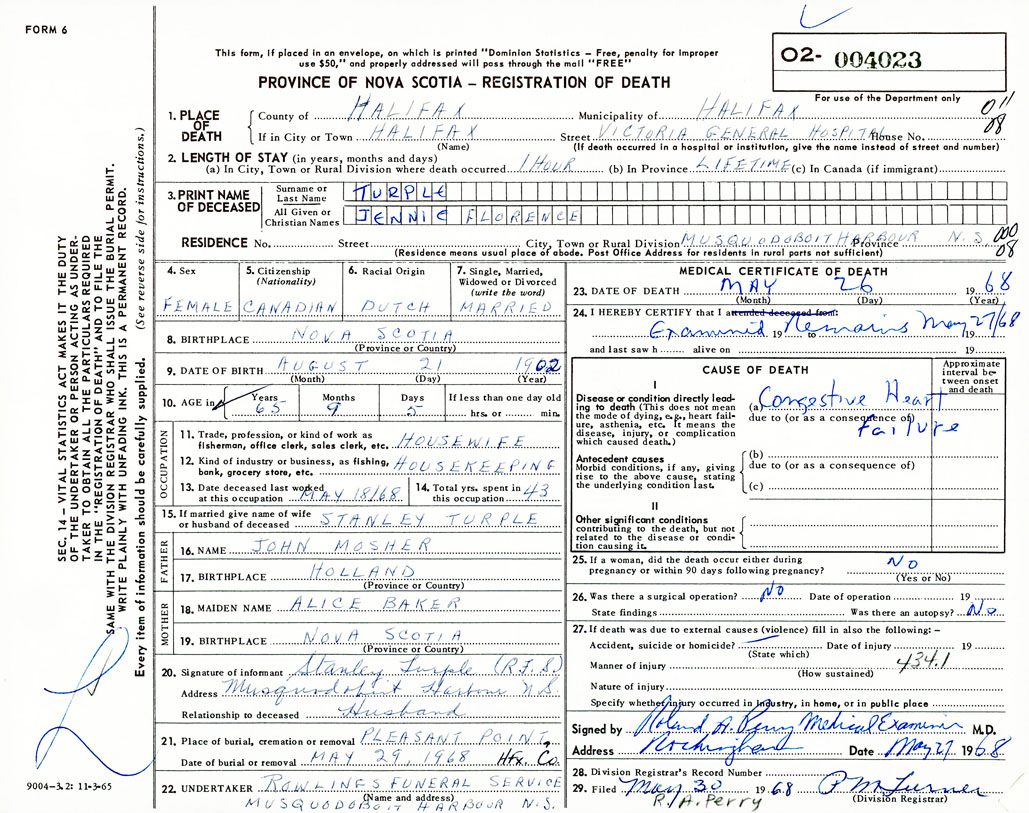 FORM 6
This form, if placed in an envelope, on which is printed "Dominion Statistics – Free, penalty for improper
use $50," and properly addressed will pass through the mail "FREE"
PROVINCE OF NOVA SCOTIA – REGISTRATION OF DEATH
02- 004023
For use of the Department only
011
08
1. PLACE OF DEATH
County of HALIFAX Municipality of HALIFAX
If in City or Town HALIFAX Street VICTORIA GENERAL HOSPITAL House No.
(Name) (If death occurred in a hospital or institution, give the name instead of street and number)
2. LENGTH OF STAY (in years, months and days)
(a) In City, Town or Rural Division where death occurred 1 HOUR (b) In Province LIFETIME (c) In Canada (if immigrant)
3. PRINT NAME OF DECEASED
Surname or Last Name TURPLE
All Given or Christian Names JENNIE FLORENCE
RESIDENCE No. Street City, Town or Rural Division MUSQUODOBOIT HARBOUR Province N.S.
(Residence means usual place of abode. Post Office Address for residents in rural parts not sufficient)
000
08
4. Sex FEMALE
5. Citizenship (Nationality) CANADIAN
6. Racial Origin DUTCH
7. Single, Married, Widowed or Divorced (write the word) MARRIED
8. BIRTHPLACE NOVA SCOTIA
(Province or Country)
9. DATE OF BIRTH AUGUST 21 1902
(Month) (Day) (Year)
10. AGE in Years 65 Months 9 Days 5 If less than one day old hrs. or min.
OCCUPATION
11. Trade, profession, or kind of work as
fisherman, office clerk, sales clerk, etc. HOUSEWIFE
12. Kind of industry or business, as fishing,
bank, grocery store, etc. HOUSEKEEPING
13. Date deceased last worked
at this occupation MAY 18/68
14. Total yrs. spent in
this occupation 43
15. If married give name of wife
or husband of deceased STANLEY TURPLE
FATHER
16. NAME JOHN MOSHER
17. BIRTHPLACE HOLLAND
(Province or Country)
MOTHER
18. MAIDEN NAME ALICE BAKER
19. BIRTHPLACE NOVA SCOTIA
(Province or Country)
20. Signature of informant Stanley Turple (R.F.S)
Address Musquodoboit Harbour N.S.
Relationship to deceased Husband
21. Place of burial, cremation or removal PLEASANT POINT,
Date of burial or removal MAY 29, 1968 Hfx. Co.
22. UNDERTAKER ROWLINGS FUNERAL SERVICE
(Name and address)
MUSQUODOBOIT HARBOUR N.S.
MEDICAL CERTIFICATE OF DEATH
23. DATE OF DEATH MAY 26 1968
(Month) (Day) (Year)
24. I HEREBY CERTIFY that I attended deceased from:
Examined 19 Remains to May 27/68 19
and last saw h alive on 19
CAUSE OF DEATH
Approximate interval between onset and death
I
Disease or condition directly lead-
ing to death (This does not mean
the mode of dying, e.g., heart fail-
ure, asthenia, etc. It means the
disease, injury, or complication
which caused death.)
(a) Congestive Heart
due to (or as a consequence of)
Failure
Antecedent causes
Morbid conditions, if any, giving
rise to the above cause, stating
the underlying condition last.
(b)
due to (or as a consequence of)
(c)
II
Other significant conditions
contributing to the death, but not
related to the disease or condi-
tion causing it.
25. If a woman, did the death occur either during
pregnancy or within 90 days following pregnancy? No
(Yes or No)
26. Was there a surgical operation? No Date of operation 19
State findings Was there an autopsy? No
27. If death was due to external causes (violence) fill in also the following: –
Accident, suicide or homicide? Date of injury 19
(State which)
434.1
Manner of injury
(How sustained)
Nature of injury
Specify whether injury occurred in industry, in home, or in public place
Signed by Roland A. Perry Medical Examiner M.D.
Address Rockingham Date May 27 1968
28. Division Registrar's Record Number
29. Filed May 30 1968 P M Turner
(Division Registrar)
R.A. Perry
SEC. 14 – VITAL STATISTICS ACT MAKES IT THE DUTY
OF THE UNDERTAKER OR PERSON ACTING AS UNDER-
TAKER TO OBTAIN ALL THE PARTICULARS REQUIRED
IN THE "REGISTRATION OF DEATH" AND TO FILE THE
SAME WITH THE DIVISION REGISTRAR WHO SHALL ISSUE THE BURIAL PERMIT.
WRITE PLAINLY WITH UNFADING INK. THIS IS A PERMANENT RECORD.
Every item of information should be carefully supplied. (See reverse side for instructions.)
9004-3.2: 11-3-65